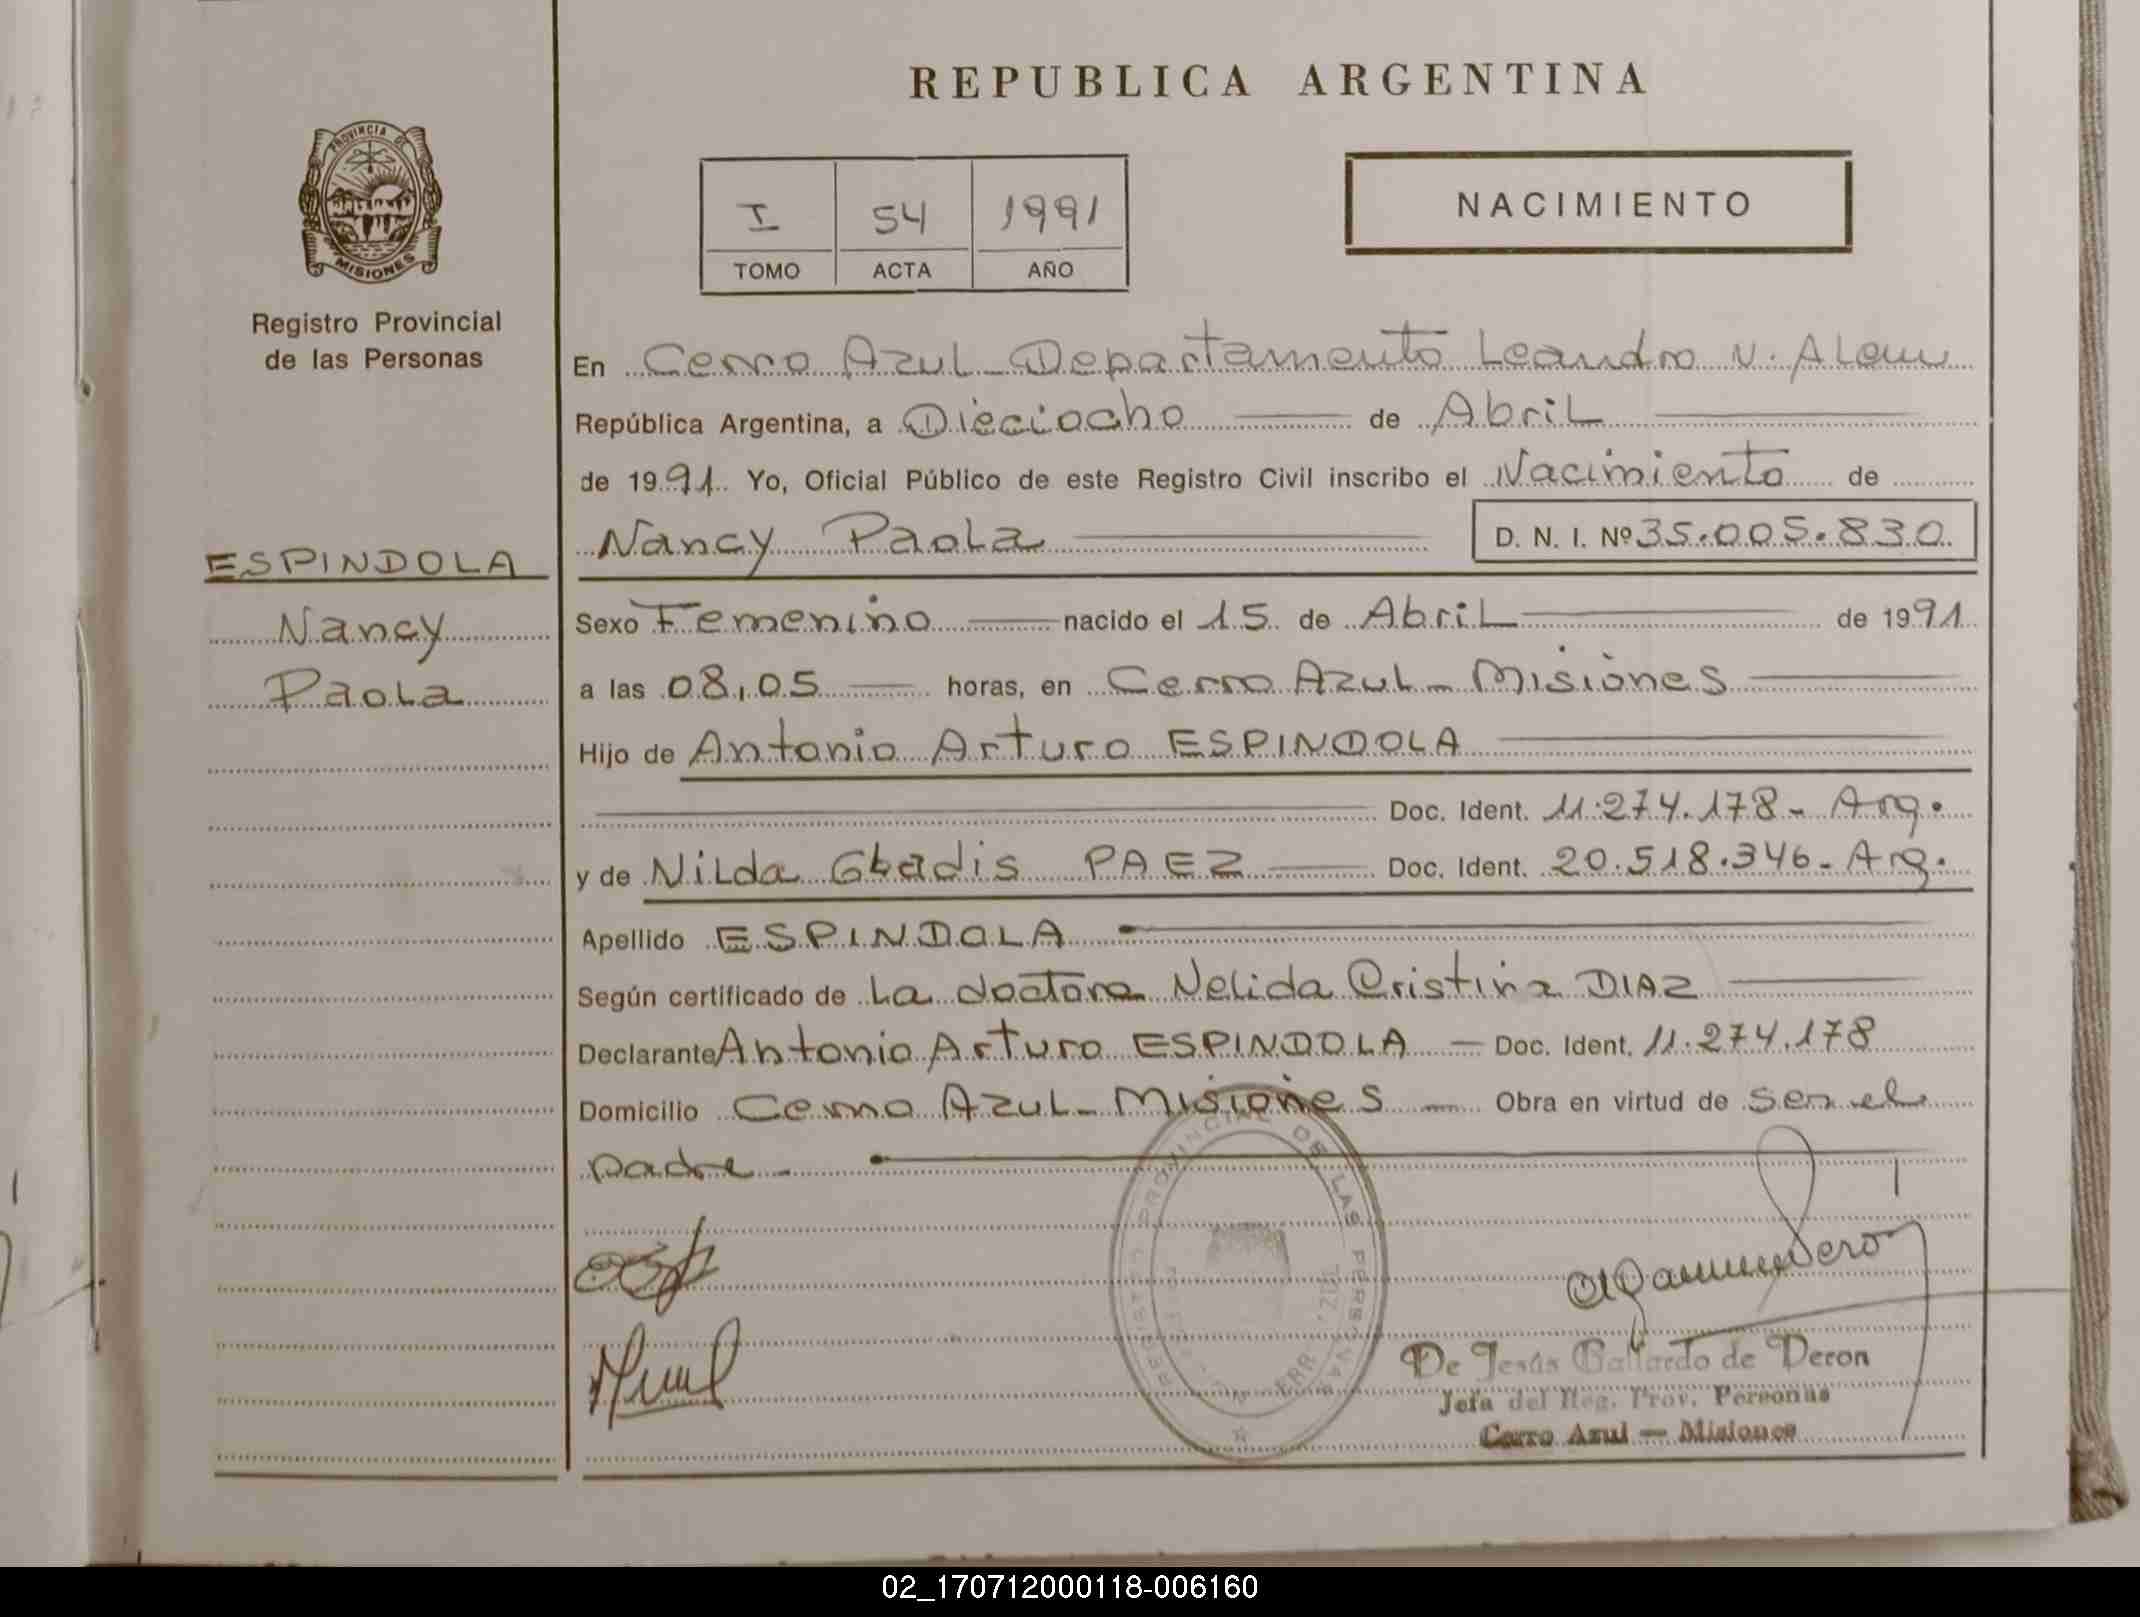 REPUBLICA ARGENTINA
PROVINCIA DE
MISIONES
Registro Provincial
de las Personas
I 54 1991
TOMO ACTA AÑO
NACIMIENTO
En Cerro Azul - Departamento Leandro N. Alem
República Argentina, a Dieciocho de Abril
de 1991 Yo, Oficial Público de este Registro Civil inscribo el Nacimiento de
Nancy Paola D. N. I. Nº 35.005.830
ESPINDOLA
Nancy
Paola
Sexo Femenino nacido el 15 de Abril de 1991
a las 08,05 horas, en Cerro Azul - Misiones
Hijo de Antonio Arturo ESPINDOLA
Doc. Ident. 11.274.178 - Arg.
y de Nilda Gladis PAEZ Doc. Ident. 20.518.346 - Arg.
Apellido ESPINDOLA
Según certificado de La doctora Nelida Cristina DIAZ
Declarante Antonio Arturo ESPINDOLA - Doc. Ident. 11.274.178
Domicilio Cerro Azul - Misiones - Obra en virtud de ser el
padre -
REGISTRO PROVINCIAL DE LAS PERSONAS
De Jesús Gallardo de Deron
Jefa del Reg. Prov. Personas
Cerro Azul — Misiones
02_170712000118-006160